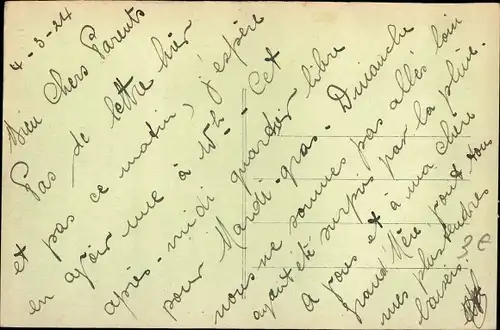 4-3-24
Bien Chers Parents
Pas de lettre hier
et pas ce matin, j'espère
en avoir une à 15h. Cet
après-midi quartier libre
pour Mardi-gras. Dimanche
nous ne sommes pas allés loin
ayant été surpris par la pluie.
A vous et à ma chère
grand'Mère pour tous
mes plus tendres
baisers.
2€